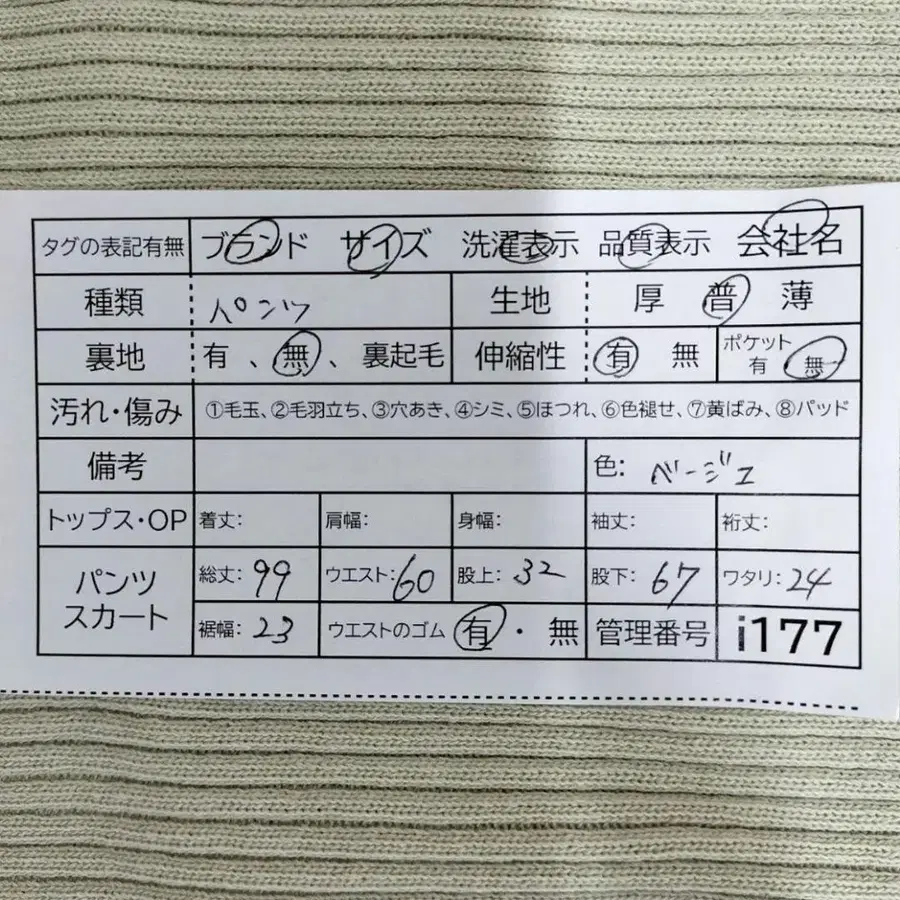 タグの表記有無 ブランド サイズ 洗濯表示 品質表示 会社名
種類 パンツ 生地 厚 普 薄
裏地 有 、無 、裏起毛 伸縮性 有 無 ポケット 有 無
汚れ・傷み ①毛玉、②毛羽立ち、③穴あき、④シミ、⑤ほつれ、⑥色褪せ、⑦黄ばみ、⑧パッド
備考 色: ベージュ
トップス・OP 着丈: 肩幅: 身幅: 袖丈: 裄丈:
パンツ スカート 総丈: 99 ウエスト: 60 股上: 32 股下: 67 ワタリ: 24
裾幅: 23 ウエストのゴム 有・無 管理番号 i177